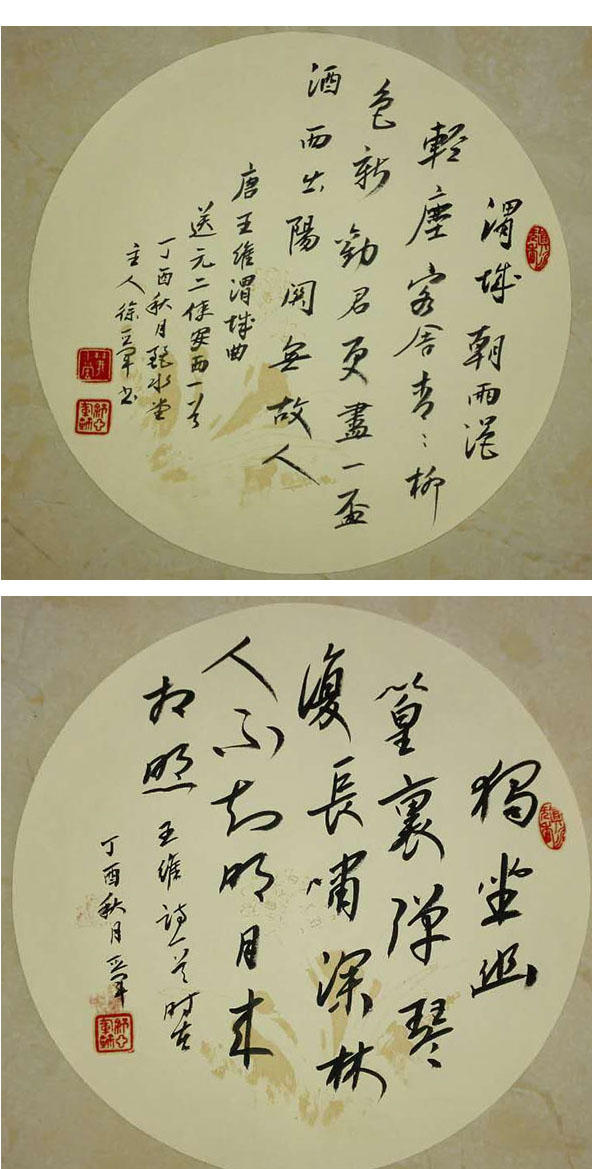 渭城朝雨浥
輕塵客舍青々柳
色新勸君更盡一盃
酒西出陽關無故人
唐王維渭城曲
送元二使安西一首
丁酉秋月水堂
主人徐亞軍书
獨坐幽
篁裏彈琴
復長嘯深林
人不知明月來
相照
王維詩一首时在
丁酉秋月亞軍